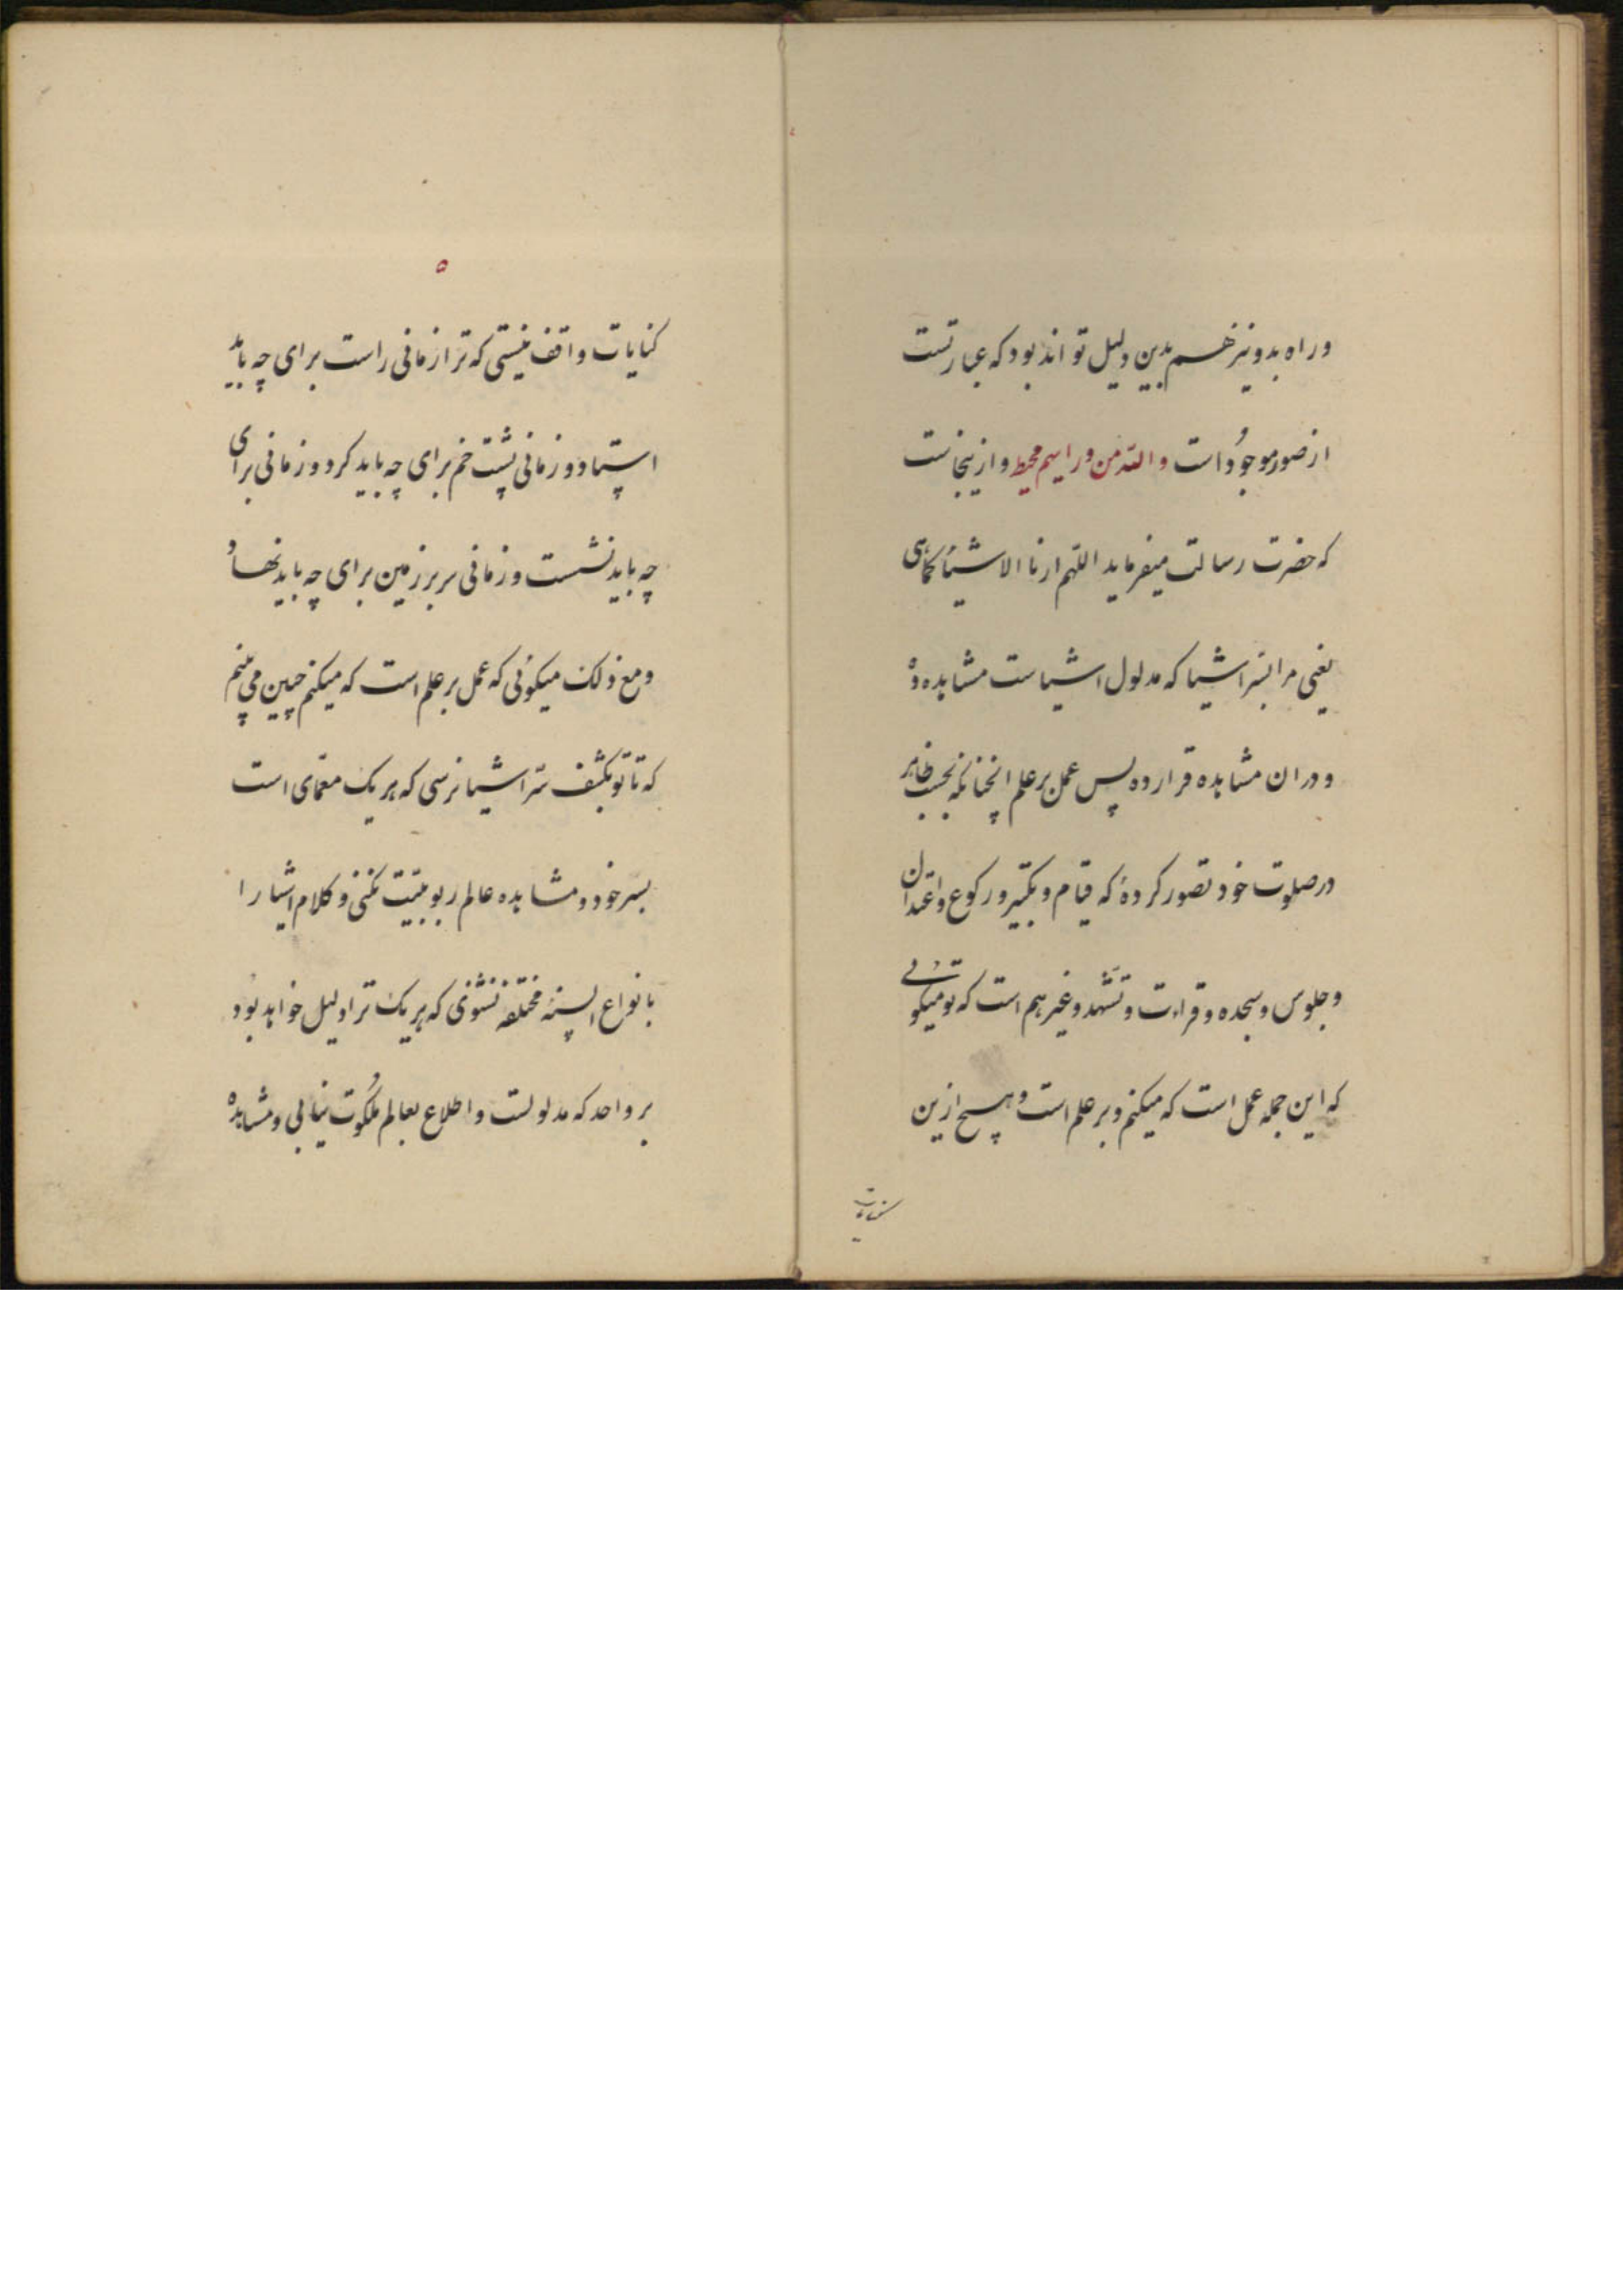 وراه بدو نیز هم بدین دلیل تواند بود که عبارتست
از صور موجودات والله من ورائهم محیط و ازینجاست
که حضرت رسالت میفرماید اللهم ارنا الاشیاء کماهی
یعنی مرا بسر اشیا که مدلول اشیاست مشاهده ده
و در ان مشاهده قرار ده پس عمل بر علم انچنانکه بحسب ظاهر
در صلوت خود تصور کردهٔ که قیام و تکبیر و رکوع و اعتدال
و جلوس و سجده و قراءت و تشهد و غیرهم است که تو میکوئی
که این جمله عمل است که میکنم و بر علم است و هیچ ازین
کنایات
۵
کنایات واقف نیستی که ترا زمانی راست برای چه باید
استاد و زمانی پشت خم برای چه باید کرد و زمانی برای
چه باید نشست و زمانی سر بر زمین برای چه باید نهاد
و مع ذلک میکوئی که عمل بر علم است که میکنم چنین می بینم
که تا تو بکشف سر اشیا نرسی که هر یک معمای است
بسر خود و مشاهده عالم ربوبیت نکنی و کلام اشیا را
بانواع السنهٔ مختلفه نشنوی که هر یک ترا دلیل خواهد بود
بر واحد که مدلولست و اطلاع بعالم ملکوت نیابی و مشاهده